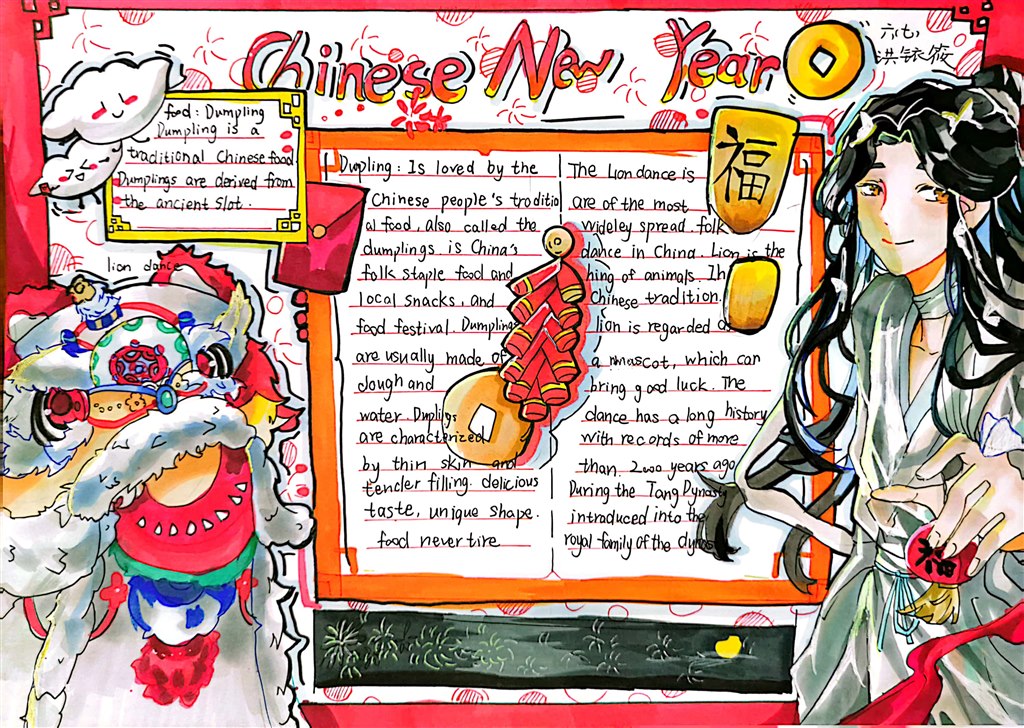 Chinese New Year
洪
food: Dumpling
Dumpling is a
traditional Chinese food
Dumplings are derived from
the ancient Slot.
lion dance
福
Dupling: Is loved by the
Chinese people's traditio
al food, also called the
dumplings. is China's
folk staple food and
local snacks, and
food festival. Dumplings
are usually made of
dough and
water. Duplings
are characterized
by thin skin and
tender filling. delicious
taste, unique shape.
food never tire
The Lion dance is
are of the most
wideley spread folk
dance in China. Lion is the
hing of animals. In
Chinese tradition.
lion is regarded
a mascot, which can
bring good luck. The
dance has a long history
with records of more
than 2000 years ago
During the Tang Dynasty
introduced into the
royal family of the dynas
福